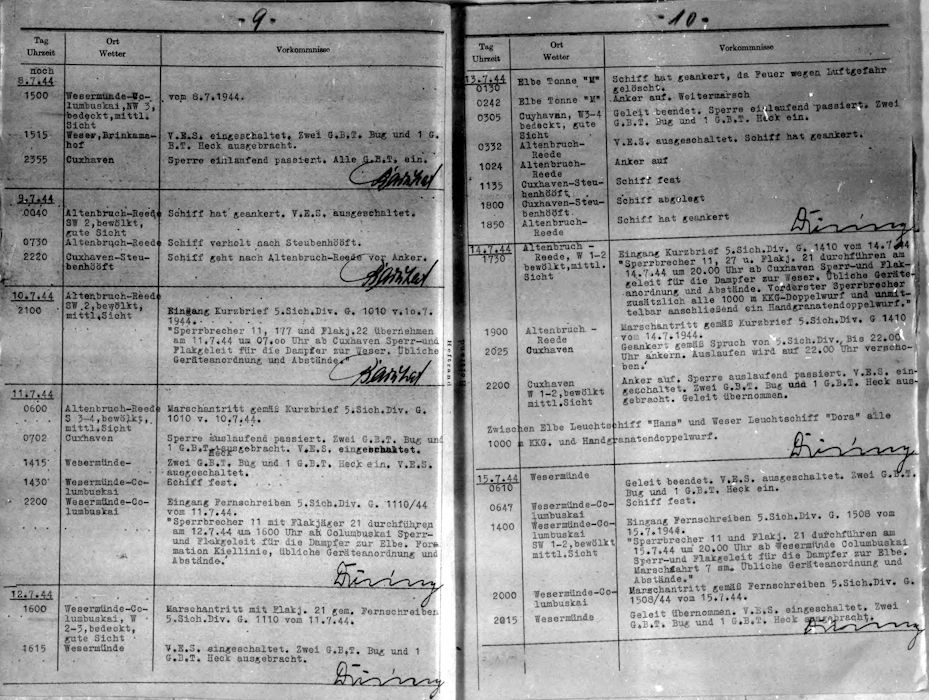 - 9 -
Tag
Uhrzeit
Ort
Wetter
Vorkommnisse
noch
8.7.44
1500
Wesermünde-Co-
lumbuskai, NW 3,
bedeckt, mittl.
Sicht
vom 8.7.1944.
1515
Weser, Brinkama-
hof
V.E.S. eingeschaltet. Zwei G.B.T. Bug und 1 G.
B.T. Heck ausgebracht.
2355
Cuxhaven
Sperre einlaufend passiert. Alle G.B.T. ein.
9.7.44
0040
Altenbruch-Reede
SW 2, bewölkt,
gute Sicht
Schiff hat geankert. V.E.S. ausgeschaltet.
0730
Altenbruch-Reede
Schiff verholt nach Steubenhöft.
2220
Cuxhaven-Steu-
benhööft
Schiff geht nach Altenbruch-Reede vor Anker.
10.7.44
2100
Altenbruch-Reede
SW 2, bewölkt,
mittl. Sicht
Eingang Kurzbrief 5.Sich.Div. G. 1010 v.10.7.
1944.
"Sperrbrecher 11, 177 und Flakj.22 übernehmen
am 11.7.44 um 07.oo Uhr ab Cuxhaven Sperr-und
Flakgeleit für die Dampfer zur Weser. Übliche
Geräteanordnung und Abstände."
11.7.44
0600
Altenbruch-Reede
S 3-4, bewölkt,
mittl. Sicht
Marschantritt gemäß Kurzbrief 5.Sich.Div. G.
1010 v. 10.7.44.
0702
Cuxhaven
Sperre auslaufend passiert. Zwei G.B.T. Bug und
1 G.B.T. Heck ausgebracht. V.E.S. eingeschaltet.
1415
Wesermünde-
Zwei G.B.T. Bug und 1 G.B.T. Heck ein. V.E.S.
ausgeschaltet.
1430
Wesermünde-Co-
lumbuskai
Schiff fest.
2200
Wesermünde-Co-
lumbuskai
Eingang Fernschreiben 5.Sich.Div. G. 1110/44
vom 11.7.44.
"Sperrbrecher 11 mit Flakjäger 21 durchführen
am 12.7.44 um 1600 Uhr ab Columbuskai Sperr-
und Flakgeleit für die Dampfer zur Elbe. For-
mation Kiellinie, übliche Geräteanordnung und
Abstände."
Düring
12.7.44
1600
Wesermünde-Co-
lumbuskai, W
2-3, bedeckt,
gute Sicht
Marschantritt mit Flakj. 21 gem. Fernschreiben
5.Sich.Div. G. 1110 vom 11.7.44.
1615
Wesermünde
V.E.S. eingeschaltet. Zwei G.B.T. Bug und 1
G.B.T. Heck ausgebracht.
Düring
Heftrand
- 10 -
Tag
Uhrzeit
Ort
Wetter
Vorkommnisse
13.7.44
0130
Elbe Tonne "M"
Schiff hat geankert, da Feuer wegen Luftgefahr
gelöscht.
0242
Elbe Tonne "M"
Anker auf. Weitermarsch
0305
Cuyhaven, W3-4
bedeckt, gute
Sicht
Geleit beendet. Sperre einlaufend passiert. Zwei
G.B.T. Bug und 1 G.B.T. Heck ein.
0332
Altenbruch-
Reede
V.E.S. ausgeschaltet. Schiff hat geankert.
1024
Altenbruch-
Reede
Anker auf
1135
Cuxhaven-Steu-
benhööft
Schiff fest
1800
Cuxhaven-Steu-
benhööft
Schiff abgelegt
1850
Altenbruch-
Reede
Schiff hat geankert
Düring
14.7.44
1730
Altenbruch -
Reede, W 1-2
bewölkt, mittl.
Sicht
Eingang Kurzbrief 5.Sich.Div. G. 1410 vom 14.7.44
"Sperrbrecher 11, 27 u. Flakj. 21 durchführen am
14.7.44 um 20.00 Uhr ab Cuxhaven Sperr-und Flak-
geleit für die Dampfer zur Weser. Übliche Geräte-
anordnung und Abstände. Vorderster Sperrbrecher
zusätzlich alle 1000 m KKG-Doppelwurf und unmit-
telbar anschließend ein Handgranatendoppelwurf."
1900
Altenbruch -
Reede
Marschantritt gemäß Kurzbrief 5.Sich.Div. G 1410
vom 14.7.1944.
2025
Cuxhaven
Geankert gemäß Spruch von 5.Sich.Div. Bis 22.00
Uhr ankern. Auslaufen wird auf 22.00 Uhr verscho-
ben.
2200
Cuxhaven
W 1-2, bewölkt
mittl. Sicht
Anker auf. Sperre auslaufend passiert. V.E.S. ein-
geschaltet. Zwei G.B.T. Bug und 1 G.B.T. Heck aus-
gebracht. Geleit übernommen.
Zwischen Elbe Leuchtschiff "Hans" und Weser Leuchtschiff "Dora" alle
1000 m KKG. und Handgranatendoppelwurf.
Düring
15.7.44
0610
Wesermünde
Geleit beendet. V.E.S. ausgeschaltet. Zwei G.B.T.
Bug und 1 G.B.T. Heck ein.
0647
Wesermünde-Co-
lumbuskai
Schiff fest.
1400
Wesermünde-Co-
lumbuskai
SW 1-2, bewölkt
mittl. Sicht
Eingang Fernschreiben 5.Sich.Div. G. 1508 vom
15.7.1944.
"Sperrbrecher 11 und Flakj. 21 durchführen am
15.7.44 um 20.00 Uhr ab Wesermünde Columbuskai
Sperr-und Flakgeleit für die Dampfer zur Elbe.
Marschfahrt 7 sm. Übliche Geräteanordnung und
Abstände."
2000
Wesermünde-Co-
lumbuskai
Marschantritt gemäß Fernschreiben 5.Sich.Div. G.
1508/44 vom 15.7.44.
2015
Wesermünde
Geleit übernommen. V.E.S. eingeschaltet. Zwei
G.B.T. Bug und 1 G.B.T. Heck ausgebracht.
Düring